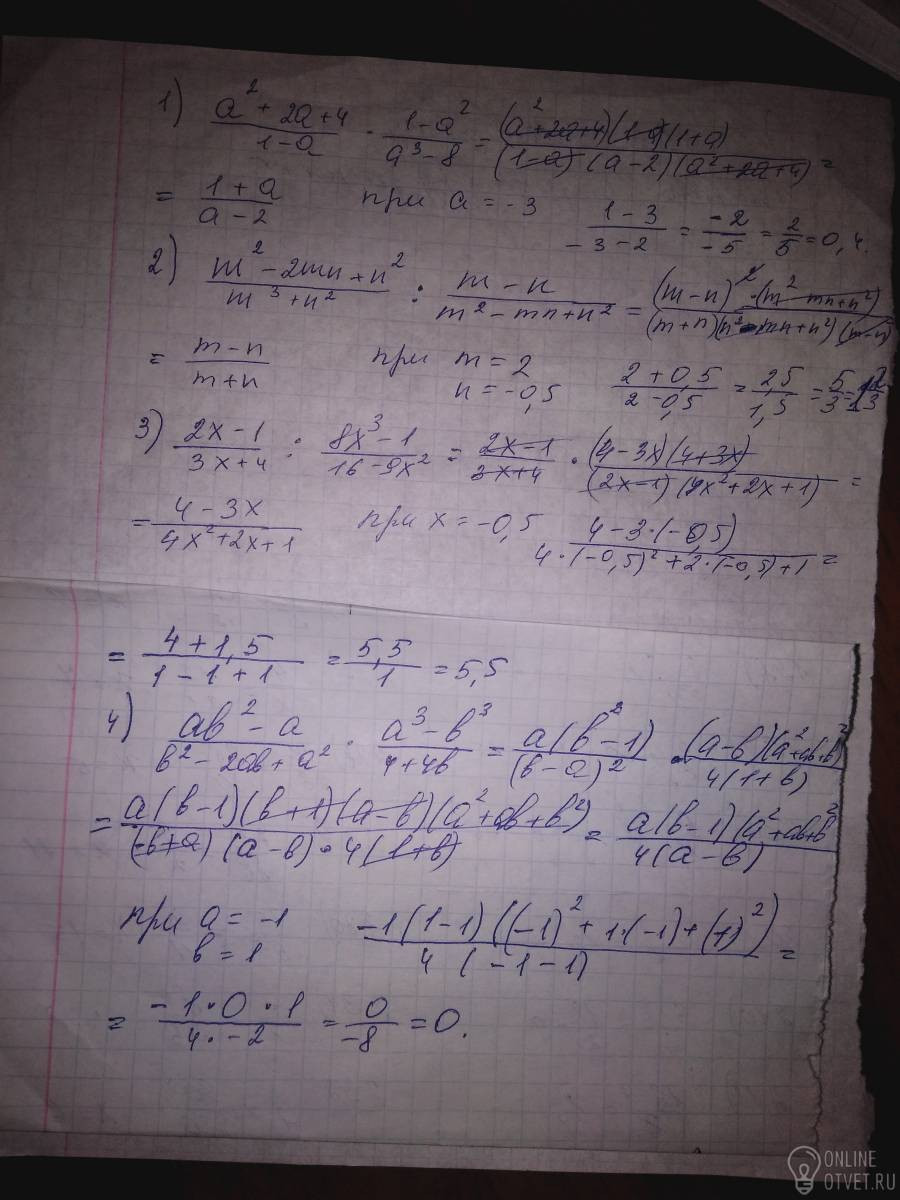 1) (a² + 2a + 4)/(1 - a) · (1 - a²)/(a³ - 8) = ((a² + 2a + 4)(1 - a)(1 + a))/((1 - a)(a - 2)(a² + 2a + 4)) =
= (1 + a)/(a - 2) при a = -3 (1 - 3)/(-3 - 2) = -2/-5 = 2/5 = 0,4.
2) (m² - 2mn + n²)/(m³ + n²) : (m - n)/(m² - mn + n²) = ((m - n)² · (m² mn + n²))/((m + n)(n² - mn + n²)(m - n))
= (m - n)/(m + n) при m = 2 n = -0,5 (2 + 0,5)/(2 - 0,5) = 2,5/1,5 = 5/3 = 1 2/3
3) (2x - 1)/(3x + 4) : (8x³ - 1)/(16 - 9x²) = (2x - 1)/(3x + 4) · ((4 - 3x)(4 + 3x))/((2x - 1)(4x² + 2x + 1)) =
= (4 - 3x)/(4x² + 2x + 1) при x = -0,5 (4 - 3·(-0,5))/(4·(-0,5)² + 2·(-0,5) + 1) =
= (4 + 1,5)/(1 - 1 + 1) = 5,5/1 = 5,5
4) (ab² - a)/(b² - 2ab + a²) · (a³ - b³)/(4 + 4b) = (a(b² - 1))/(b - a)² · ((a - b)(a² + ab + b²))/(4(1 + b))
= (a(b - 1)(b + 1)(a - b)(a² + ab + b²))/((-b + a)(a - b) · 4(1 + b)) = (a(b - 1)(a² + ab + b²))/(4(a - b))
при a = -1 b = 1 (-1(1 - 1)((-1)² + 1·(-1) + (1)²))/(4(-1 - 1)) =
= (-1 · 0 · 1)/(4 · -2) = 0/-8 = 0.
ONLINE
OTVET.RU